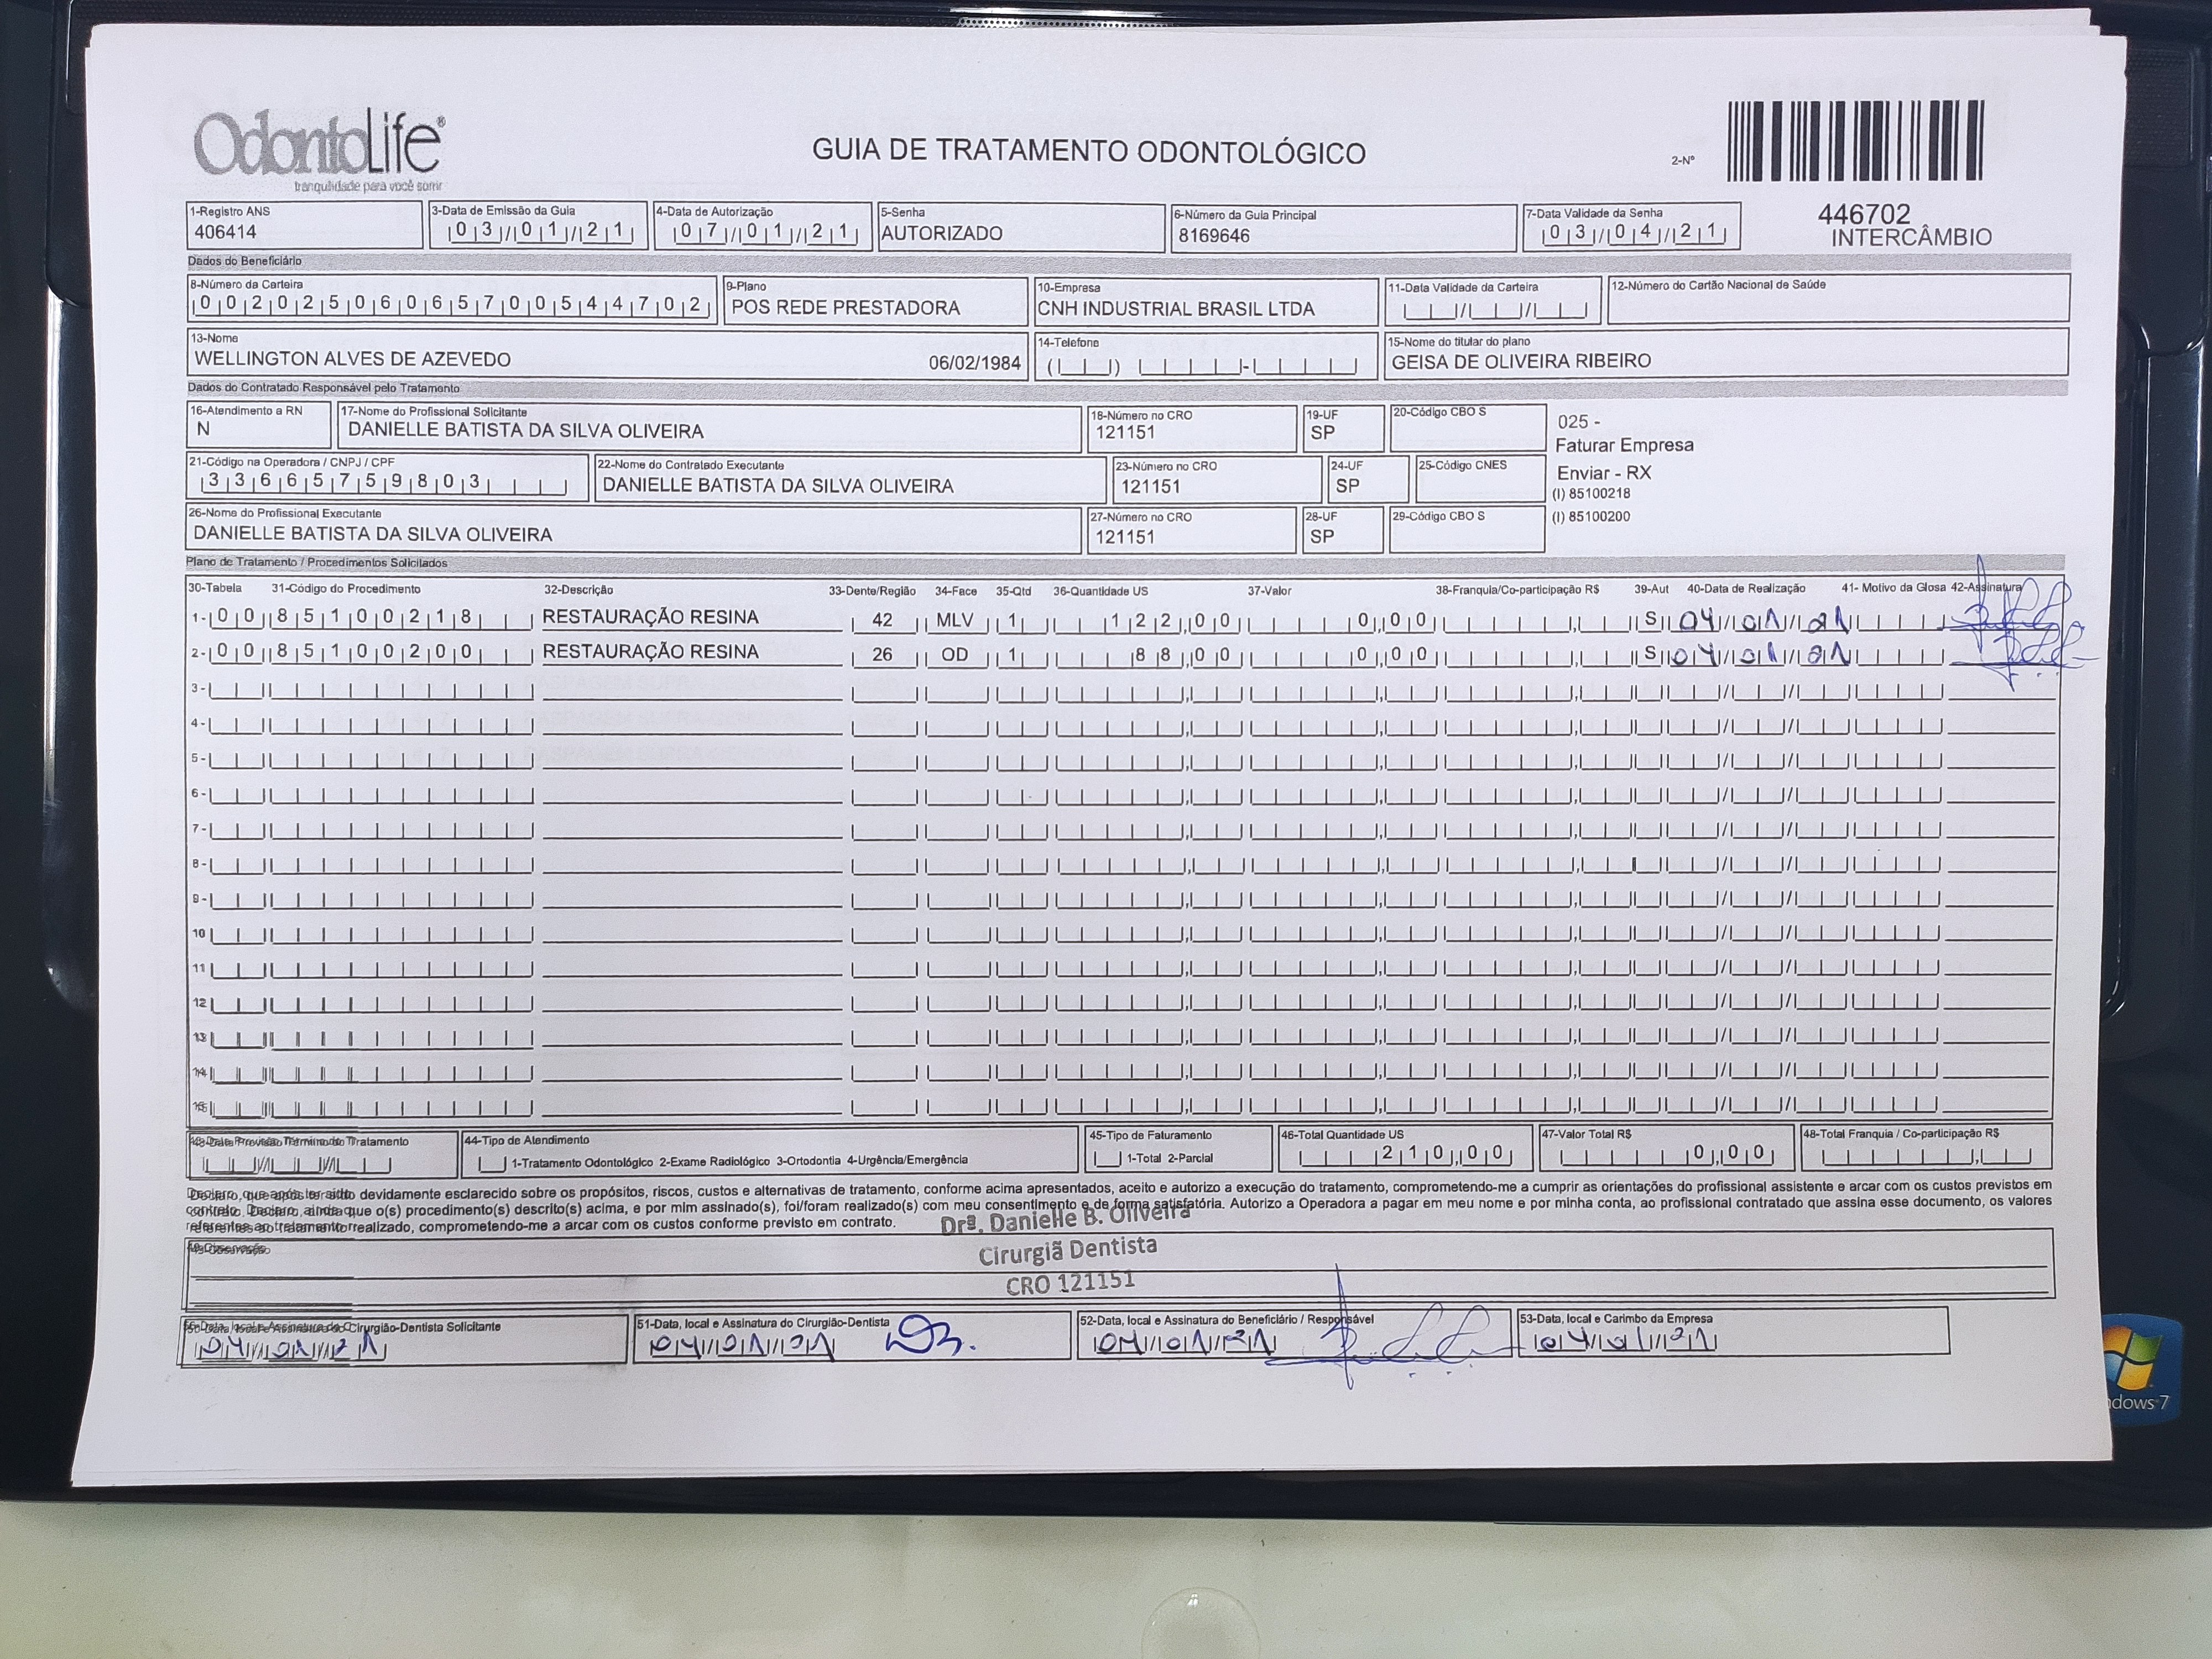 OdontoLife®
tranquilidade para você sorrir
GUIA DE TRATAMENTO ODONTOLÓGICO
2-Nº
446702
INTERCÂMBIO
1-Registro ANS
406414
3-Data de Emissão da Guia
03/01/21
4-Data de Autorização
07/01/21
5-Senha
AUTORIZADO
6-Número da Guia Principal
8169646
7-Data Validade da Senha
03/04/21
Dados do Beneficiário
8-Número da Carteira
00202506065700544702
9-Plano
POS REDE PRESTADORA
10-Empresa
CNH INDUSTRIAL BRASIL LTDA
11-Data Validade da Carteira
12-Número do Cartão Nacional de Saúde
13-Nome
WELLINGTON ALVES DE AZEVEDO 06/02/1984
14-Telefone
15-Nome do titular do plano
GEISA DE OLIVEIRA RIBEIRO
Dados do Contratado Responsável pelo Tratamento
16-Atendimento a RN
N
17-Nome do Profissional Solicitante
DANIELLE BATISTA DA SILVA OLIVEIRA
18-Número no CRO
121151
19-UF
SP
20-Código CBO S
025 -
Faturar Empresa
Enviar - RX
(I) 85100218
(I) 85100200
21-Código na Operadora / CNPJ / CPF
33665759803
22-Nome do Contratado Executante
DANIELLE BATISTA DA SILVA OLIVEIRA
23-Número no CRO
121151
24-UF
SP
25-Código CNES
26-Nome do Profissional Executante
DANIELLE BATISTA DA SILVA OLIVEIRA
27-Número no CRO
121151
28-UF
SP
29-Código CBO S
Plano de Tratamento / Procedimentos Solicitados
30-Tabela 31-Código do Procedimento 32-Descrição 33-Dente/Região 34-Face 35-Qtd 36-Quantidade US 37-Valor 38-Franquia/Co-participação R$ 39-Aut 40-Data de Realização 41- Motivo da Glosa 42-Assinatura
1- 00 85100218 RESTAURAÇÃO RESINA 42 MLV 1 122,00 0,00 S 04/01/21
2- 00 85100200 RESTAURAÇÃO RESINA 26 OD 1 88,00 0,00 S 04/01/21
3-
4-
5-
6-
7-
8-
9-
10
11
12
13
14
15
43-Data Previsão Término do Tratamento
44-Tipo de Atendimento
1-Tratamento Odontológico 2-Exame Radiológico 3-Ortodontia 4-Urgência/Emergência
45-Tipo de Faturamento
1-Total 2-Parcial
46-Total Quantidade US
210,00
47-Valor Total R$
0,00
48-Total Franquia / Co-participação R$
Declaro, que após ter sido devidamente esclarecido sobre os propósitos, riscos, custos e alternativas de tratamento, conforme acima apresentados, aceito e autorizo a execução do tratamento, comprometendo-me a cumprir as orientações do profissional assistente e arcar com os custos previstos em
contrato. Declaro, ainda que o(s) procedimento(s) descrito(s) acima, e por mim assinado(s), foi/foram realizado(s) com meu consentimento e de forma satisfatória. Autorizo a Operadora a pagar em meu nome e por minha conta, ao profissional contratado que assina esse documento, os valores
referentes ao tratamento realizado, comprometendo-me a arcar com os custos conforme previsto em contrato.
49-Observação
Drª. Danielle B. Oliveira
Cirurgiã Dentista
CRO 121151
50-Data, local e Assinatura do Cirurgião-Dentista Solicitante
04/01/21
51-Data, local e Assinatura do Cirurgião-Dentista
04/01/21
52-Data, local e Assinatura do Beneficiário / Responsável
04/01/21
53-Data, local e Carimbo da Empresa
04/01/21
dows 7